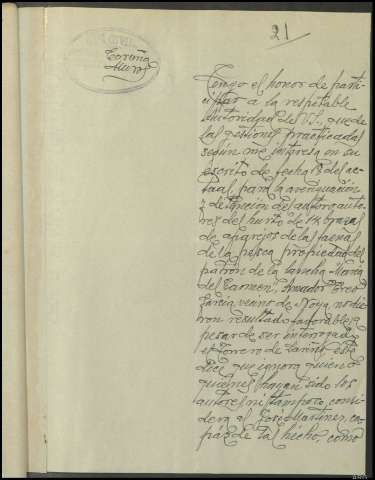 21
Coruña
Muros
Tengo el honor de parti-
cipar a la respetable
autoridad de VS. que de
las gestiones practicadas
según me interesa en su
escrito de fecha del ac-
tual, para la averiguación
y detención del autor o auto-
res del hurto de brazas
de aparejos de las faenas
de la pesca propiedad del
patrón de la lancha María
del Carmen, Amador
García vecino de Noya, no die-
ron resultado favorable, a
pesar de ser interrogado
el Torrero de este
dice que ignora quien o
quienes hayan sido los
autores ni tampoco, consi-
dera al José Martínez, ca-
paz de tal hecho, como